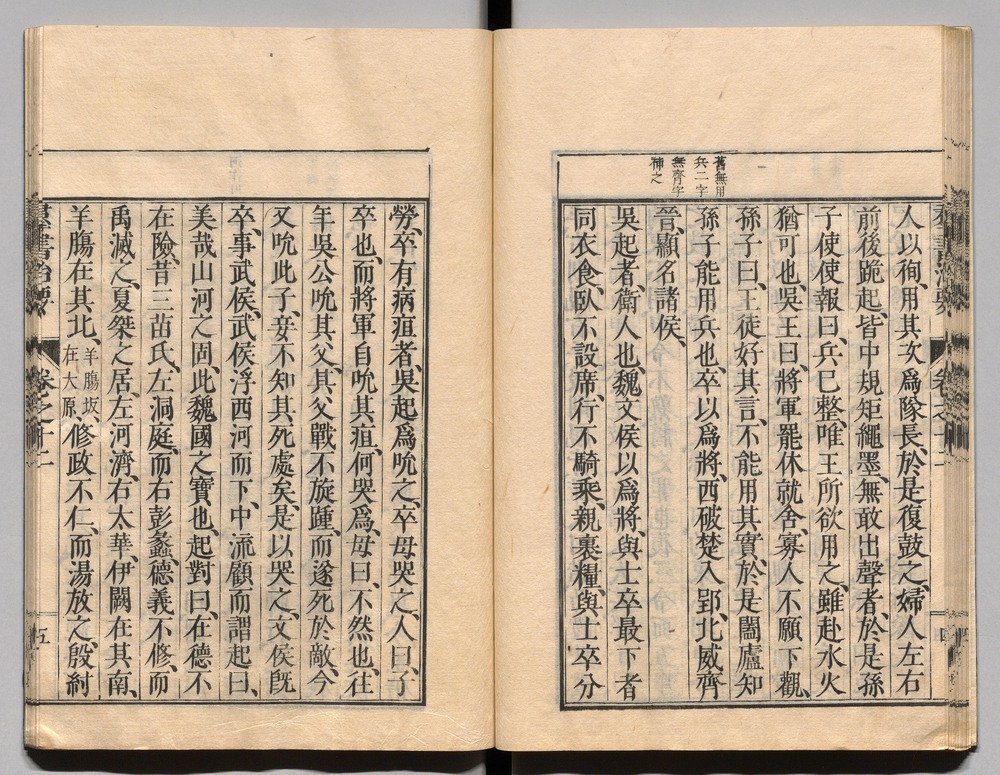 舊無用
兵二字
無齊字
補之
人以徇、用其次爲隊長、於是復鼓之、婦人左右
前後跪起、皆中規矩繩墨、無敢出聲者、於是孫
子使使報曰、兵已整、唯王所欲用之、雖赴水火
猶可也、吳王曰、將軍罷休就舍、寡人不願下觀、
孫子曰、王徒好其言、不能用其實、於是闔廬知
孫子能用兵也、卒以爲將、西破楚入郢、北威齊
晉、顯名諸侯、
吳起者、衞人也、魏文侯以爲將、與士卒最下者
同衣食、臥不設席、行不騎乘、親裹糧、與士卒分
勞、卒有病疽者、吳起爲吮之、卒母哭之、人曰、子
卒也、而將軍自吮其疽、何哭爲、母曰、不然也、往
年吳公吮其父、其父戰不旋踵、而遂死於敵、今
又吮此子、妾不知其死處矣、是以哭之、文侯既
卒、事武侯、武侯浮西河而下、中流顧而謂起曰、
美哉山河之固、此魏國之寶也、起對曰、在德不
在險、昔三苗氏、左洞庭、而右彭蠡、德義不修、而
禹滅之、夏桀之居、左河濟、右太華、伊闕在其南、
羊腸在其北、羊腸坂在大原、修政不仁、而湯放之、殷紂
羣書治要 卷之十二 五